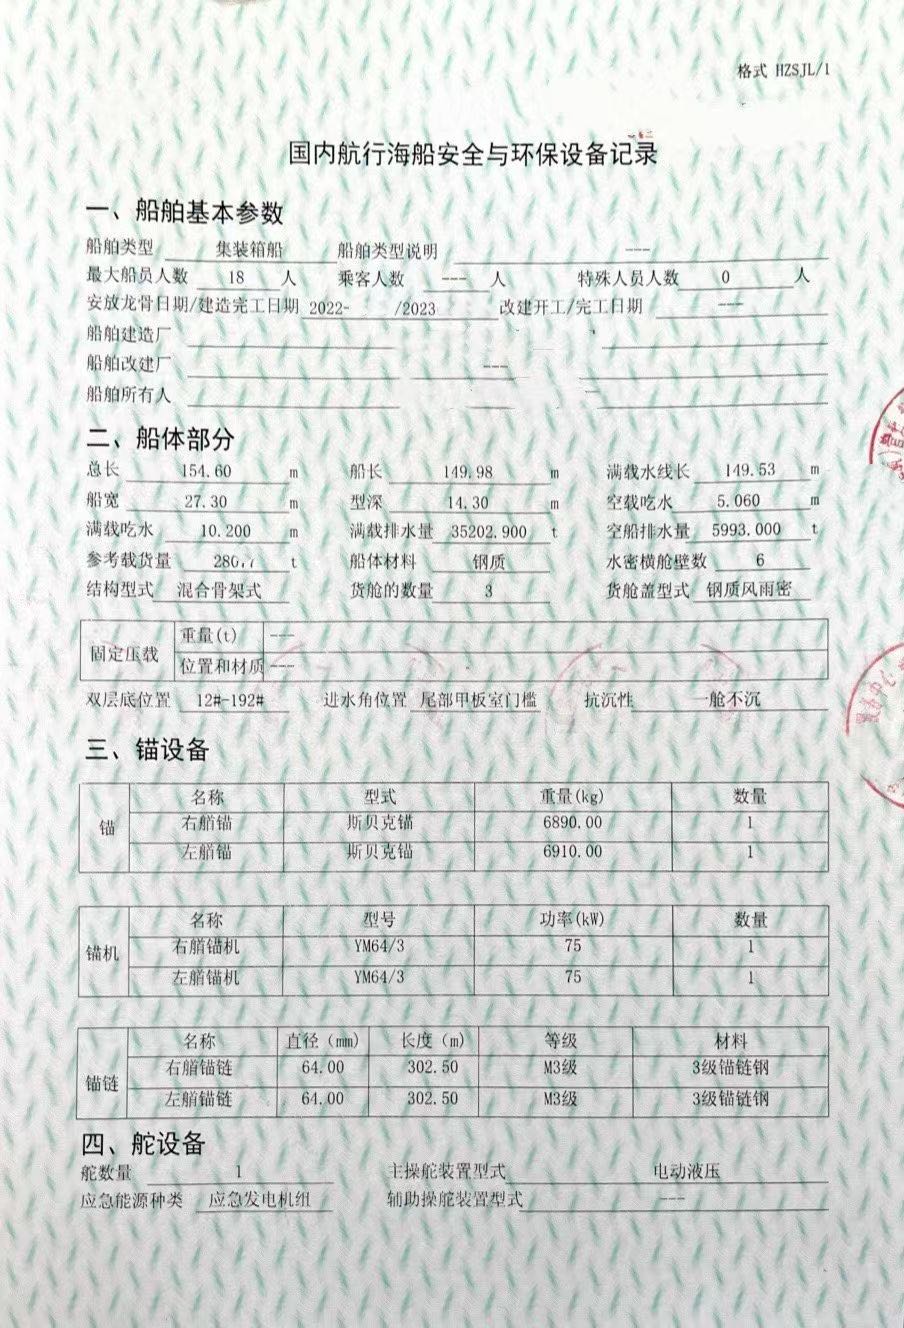 格式 HZSJL/1
国内航行海船安全与环保设备记录
一、船舶基本参数
船舶类型 集装箱船 船舶类型说明 ---
最大船员人数 18 人 乘客人数 --- 人 特殊人员人数 0 人
安放龙骨日期/建造完工日期 2022- /2023 改建开工/完工日期 ---
船舶建造厂
船舶改建厂 ---
船舶所有人
二、船体部分
总长 154.60 m 船长 149.98 m 满载水线长 149.53 m
船宽 27.30 m 型深 14.30 m 空载吃水 5.060 m
满载吃水 10.200 m 满载排水量 35202.900 t 空船排水量 5993.000 t
参考载货量 t 船体材料 钢质 水密横舱壁数 6
结构型式 混合骨架式 货舱的数量 3 货舱盖型式 钢质风雨密
固定压载 重量(t) ---
位置和材质 ---
双层底位置 12#-192# 进水角位置 尾部甲板室门槛 抗沉性 一舱不沉
三、锚设备
锚 名称 型式 重量(kg) 数量
右艏锚 斯贝克锚 6890.00 1
左艏锚 斯贝克锚 6910.00 1
锚机 名称 型号 功率(kW) 数量
右艏锚机 YM64/3 75 1
左艏锚机 YM64/3 75 1
锚链 名称 直径（mm） 长度（m） 等级 材料
右艏锚链 64.00 302.50 M3级 3级锚链钢
左艏锚链 64.00 302.50 M3级 3级锚链钢
四、舵设备
舵数量 1 主操舵装置型式 电动液压
应急能源种类 应急发电机组 辅助操舵装置型式 ---